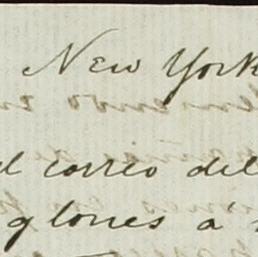 New York
el correo del
glones á